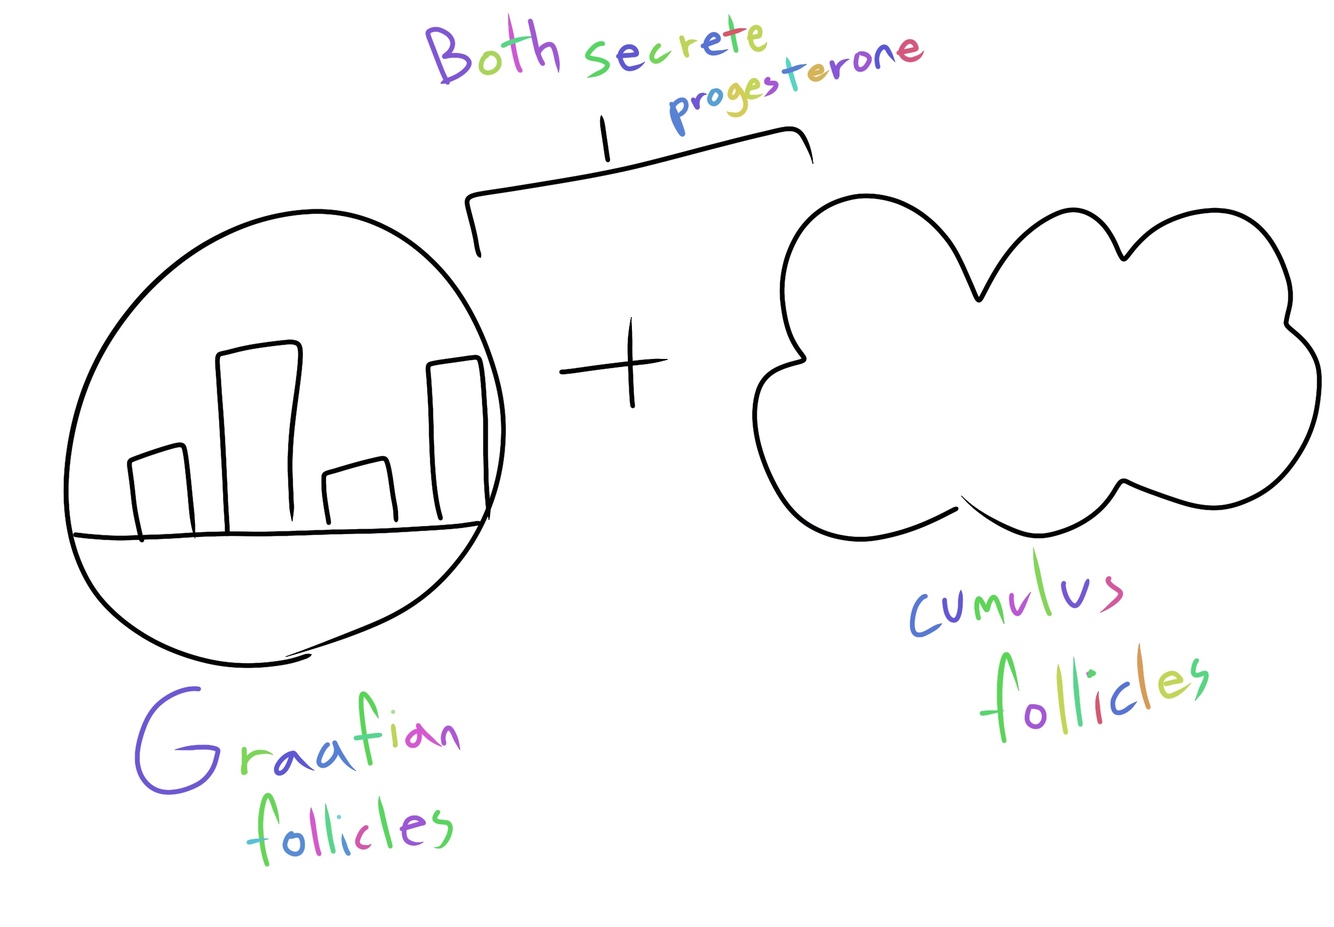 Both secrete
progesterone
Graafian
follicles
cumulus
follicles